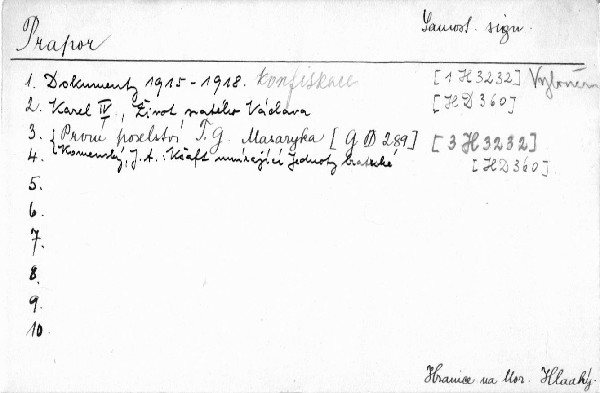 Prapor Samost. sign.
1. Dokumenty 1915-1918. konfiskace [1 H 3232]
2. Karel IV, Život svatého Václava [HD 360]
3. {První poselství T.G. Masaryka [G D 289] [3 H 3232]
4. {Komenský, J.A.: Kšaft umírající Jednoty bratrské [HD 360]
5.
6.
7.
8.
9.
10.
Hranice na Mor. Hladký.